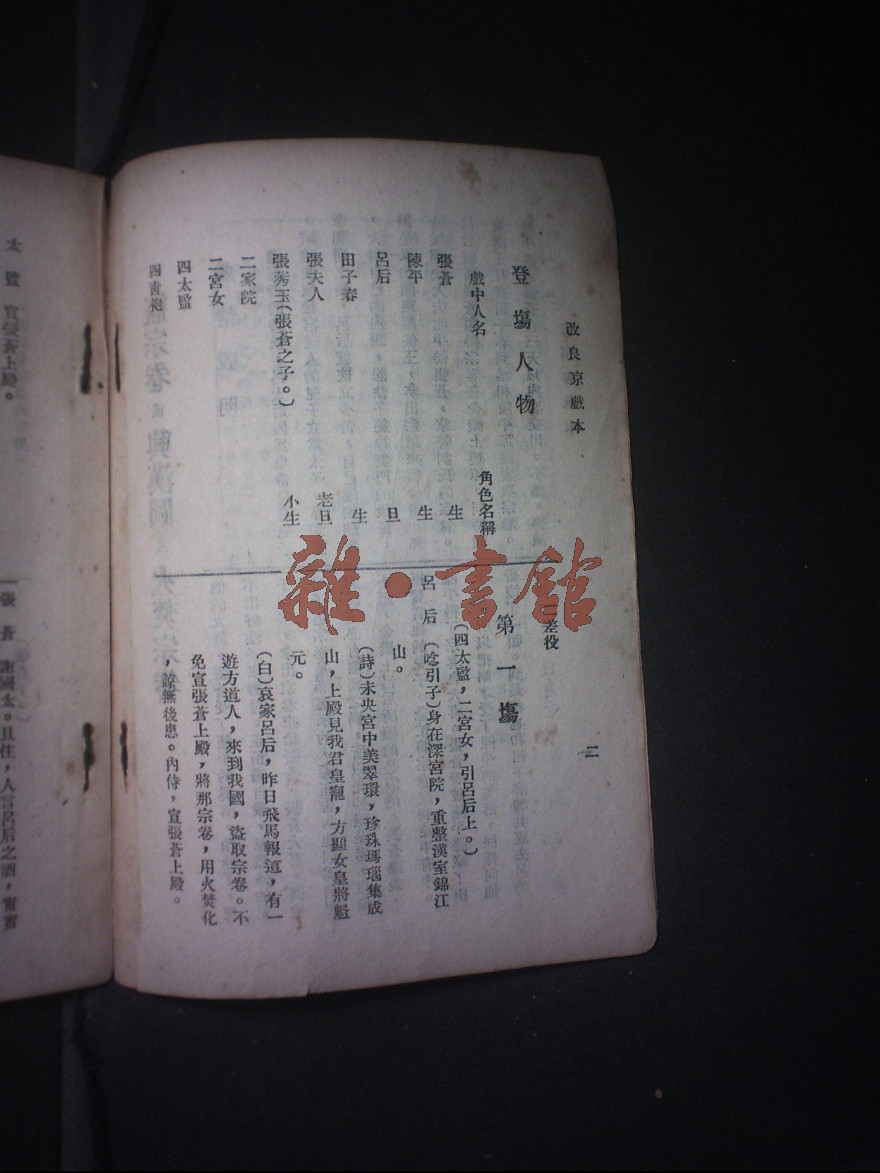 改良京戲本
二
登場人物
戲中人名 角色名稱
張蒼 生
陳平 生
呂后 旦
田子春 生
張夫人 老旦
張秀玉(張蒼之子。) 小生
二家院
二宮女
四太監
四青袍
差役
第一場
(四太監,二宮女,引呂后上。)
呂后 (唸引子)身在深宮院,重整漢室錦江
山。
(詩)未央宮中美翠環,珍珠瑪瑙集成
山,上殿見我君皇寵,方顯女皇將魁
元。
(白)哀家呂后,昨日飛馬報道,有一
遊方道人,來到我國,盜取宗卷。不
免宣張蒼上殿,將那宗卷,用火焚化
,諒無後患。內侍,宣張蒼上殿。
太監 宣張蒼上殿。
張蒼 謝國太。且住,人言呂后之酒,
雜·書館